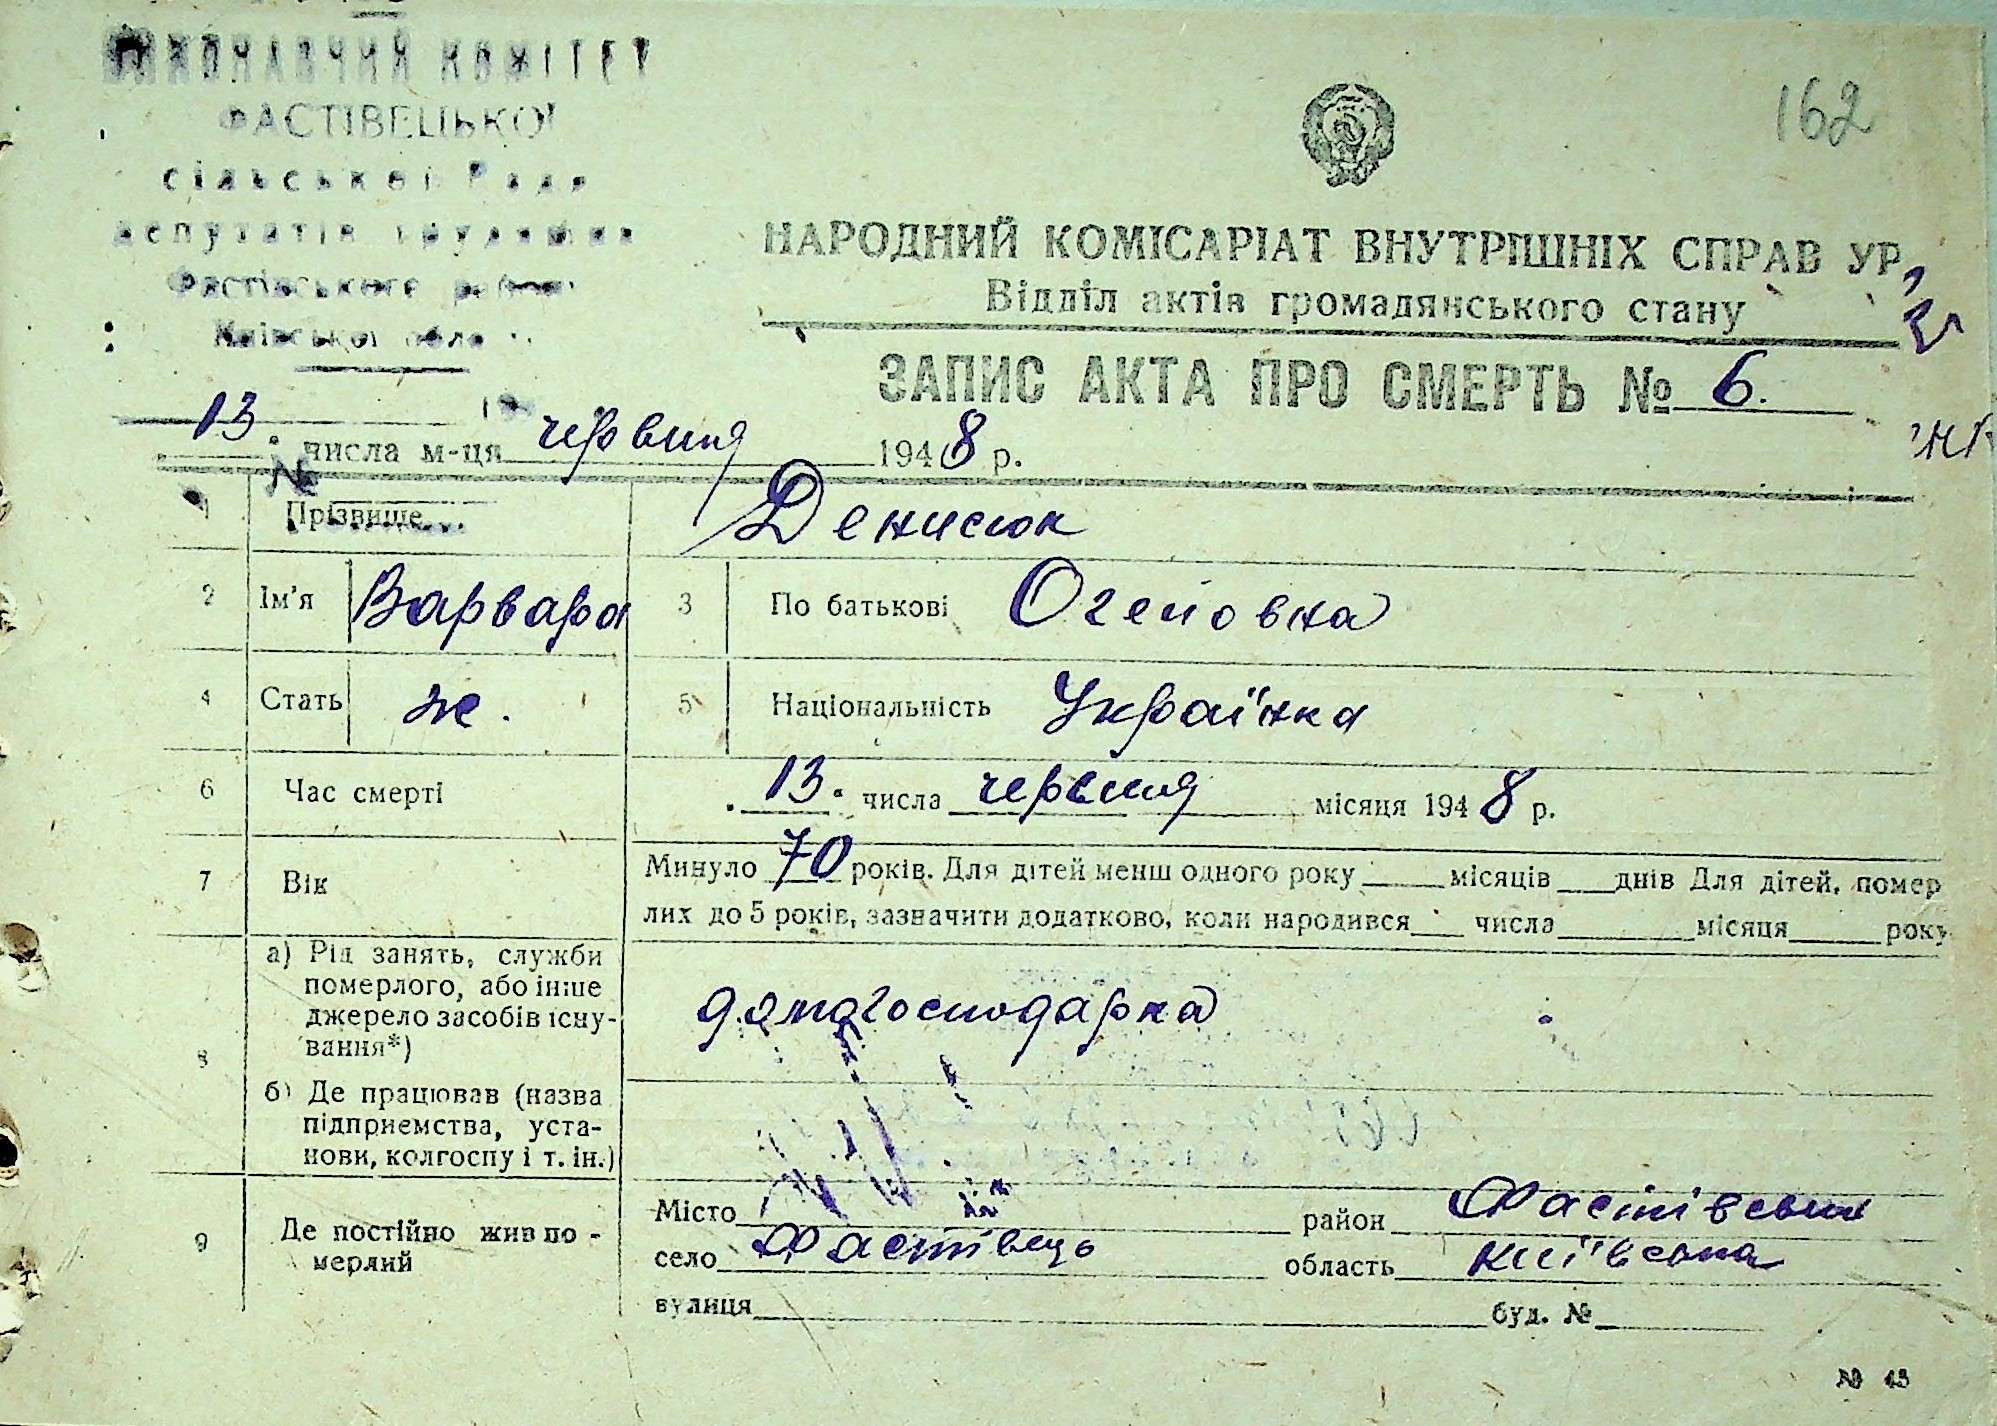 ВИКОНАВЧИЙ КОМІТЕТ
ФАСТІВЕЦЬКОЇ
сільської Ради
депутатів трудящих
Фастівського району
Київської обла
162
НАРОДНИЙ КОМІСАРІАТ ВНУТРІШНІХ СПРАВ УР
Відділ актів громадянського стану
ЗАПИС АКТА ПРО СМЕРТЬ № 6.
13 числа м-ця червня 1948 р.
№
1 Прізвище Денисюк
2 Ім'я Варвара 3 По батькові Огеповна
4 Стать ж. 5 Національність Українка
6 Час смерті 13 числа червня місяця 1948 р.
7 Вік Минуло 70 років. Для дітей менш одного року місяців днів Для дітей, помер
лих до 5 років, зазначити додатково, коли народився числа місяця року
8 а) Рід занять, служби
померлого, або інше
джерело засобів існу-
вання*)
домогосподарка
б) Де працював (назва
підприємства, уста-
нови, колгоспу і т. ін.)
9 Де постійно жив по-
мерлий
Місто район Фастівський
село Фастівець область Київська
вулиця буд. №
№ 13